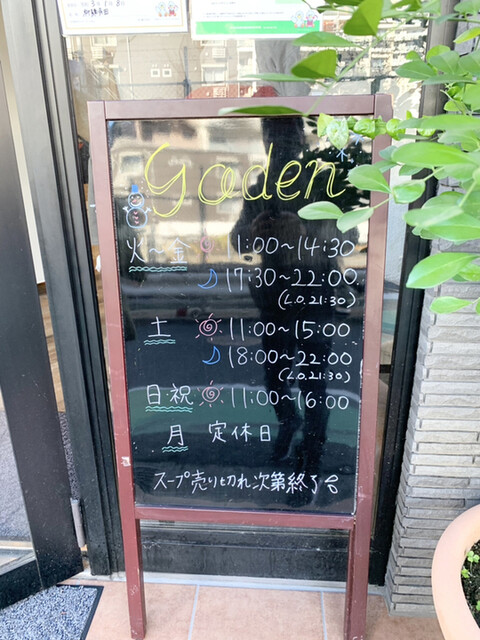 yaden
火〜金 11:00〜14:30
17:30〜22:00
(L.O.21:30)
土 11:00〜15:00
18:00〜22:00
(L.O.21:30)
日・祝 11:00〜16:00
月 定休日
スープ売り切れ次第終了